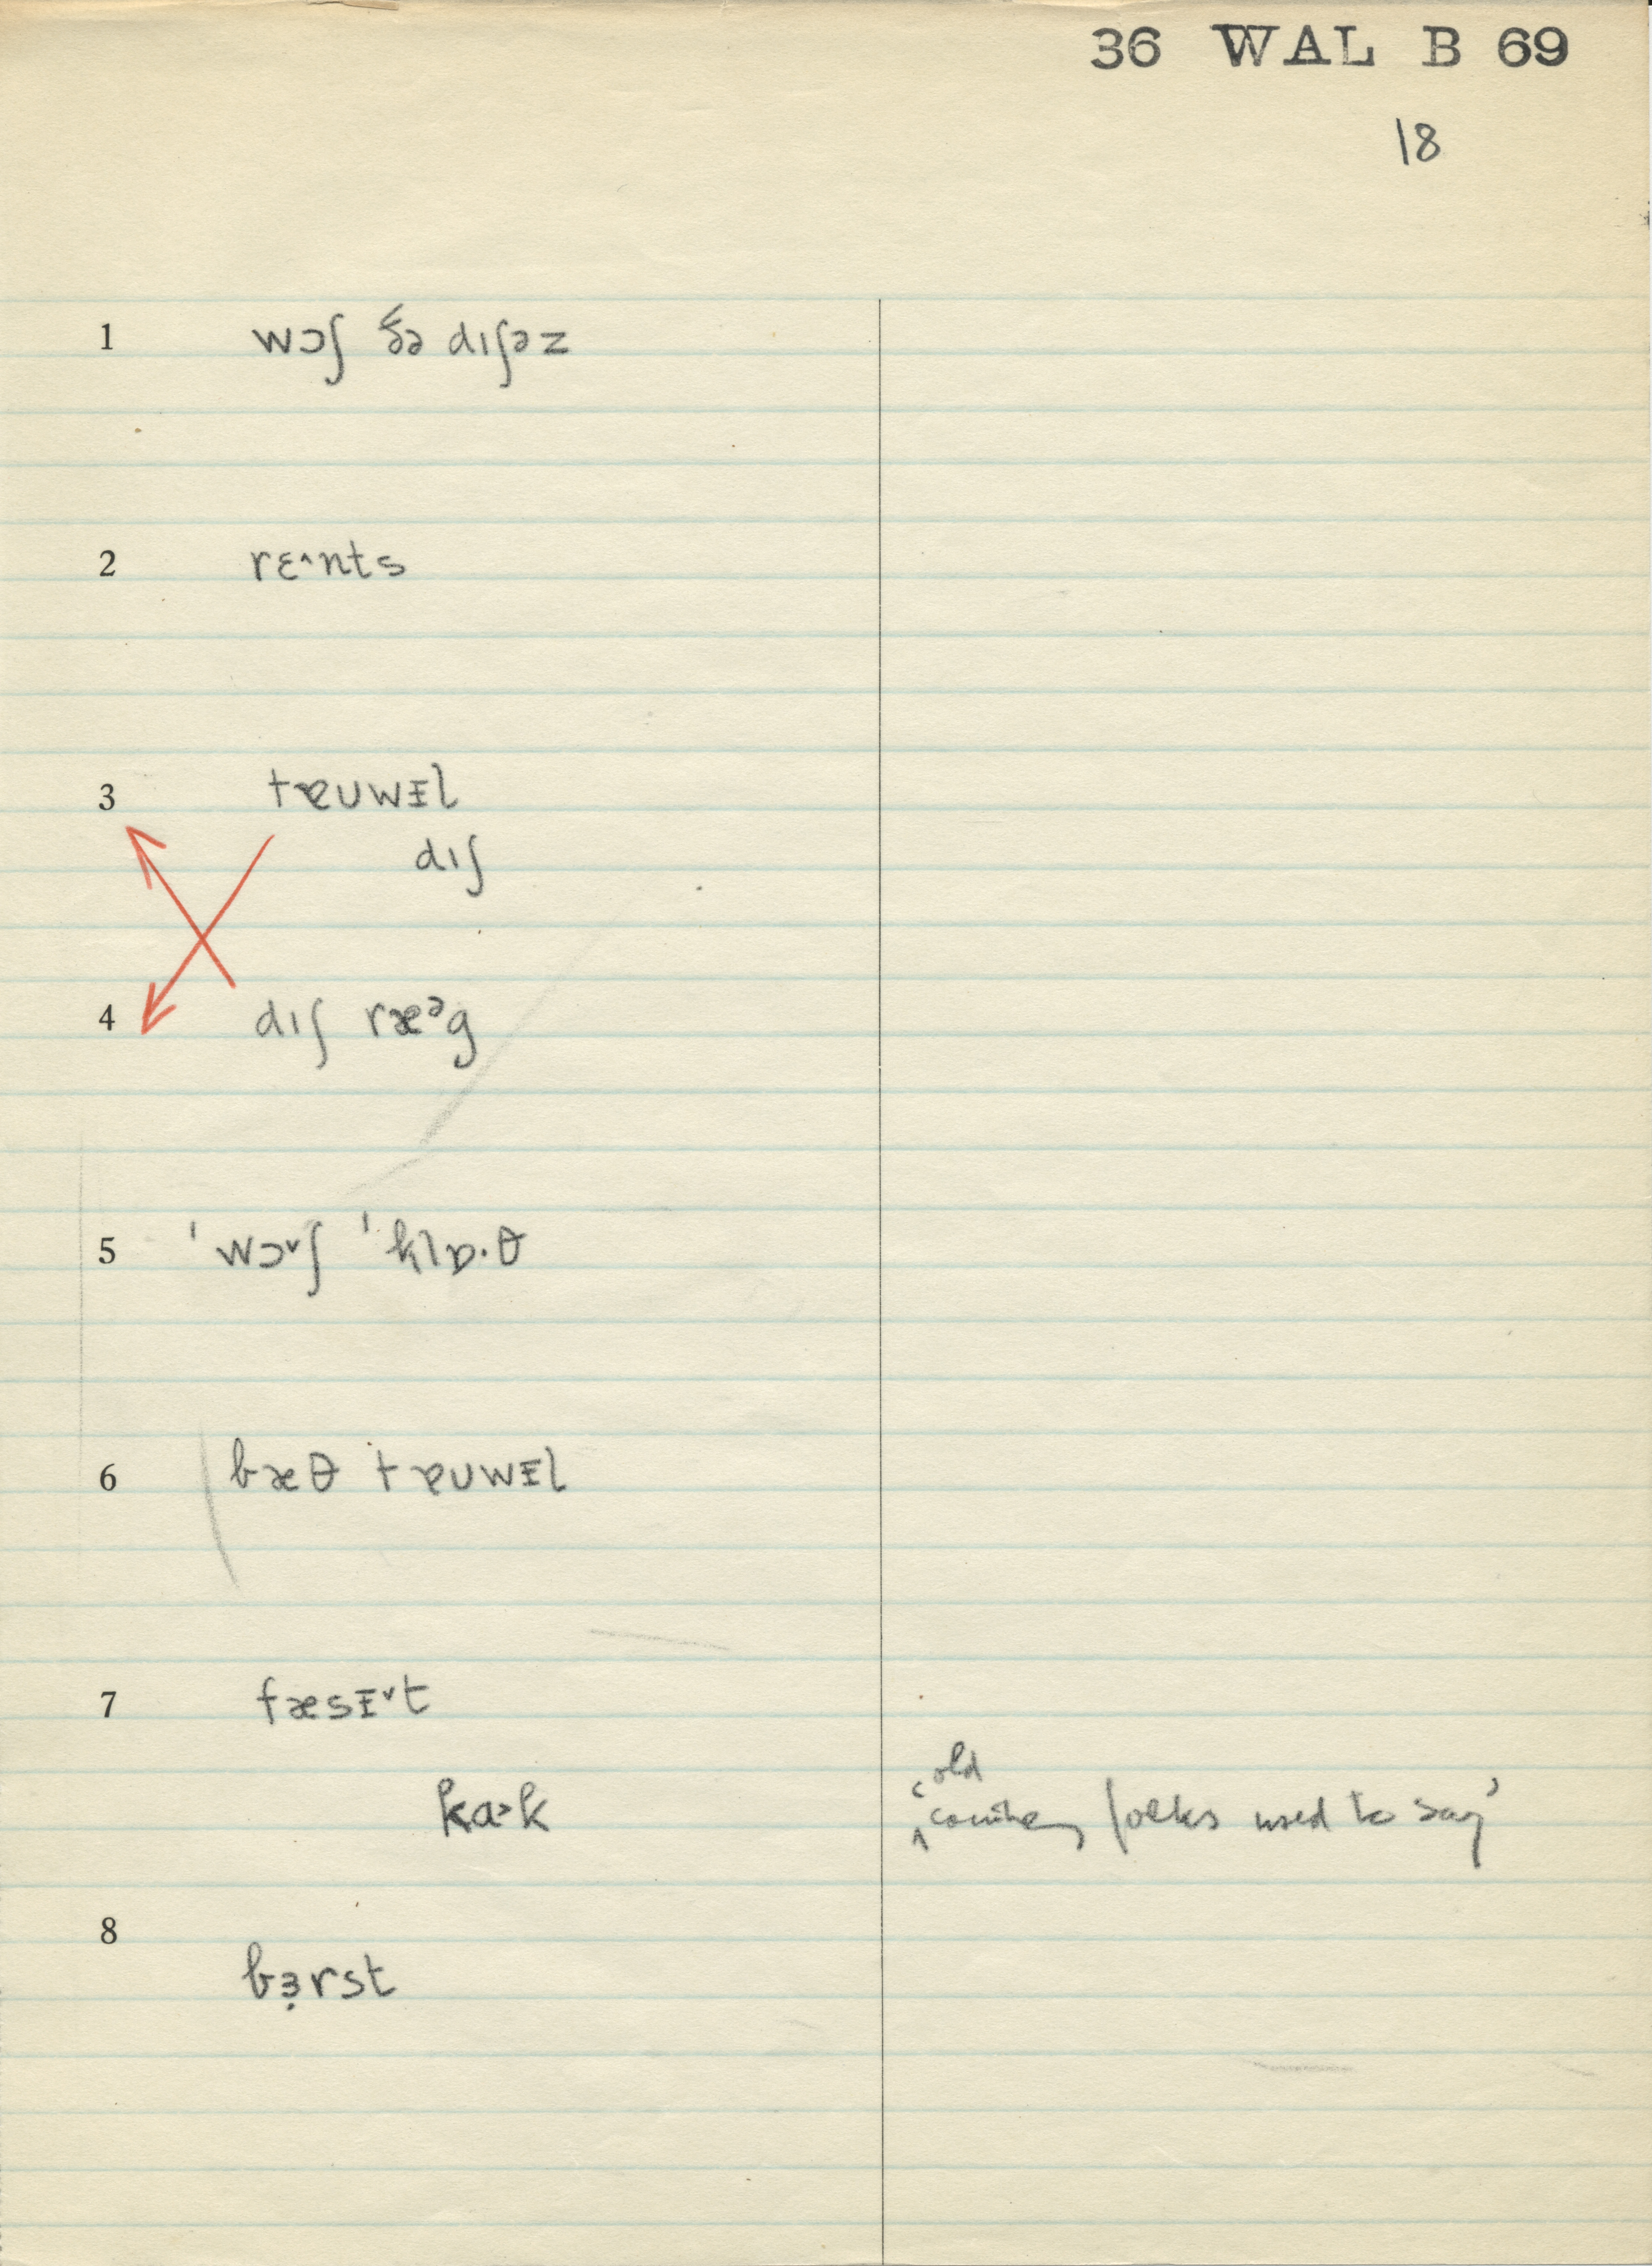 36 WAL B 69
18
1 wɔʃ ðə dɪʃəz
2 rɛ^nts
3 tɐʊwᵻl
dɪʃ
4 dɪʃ ræᵊg
5 ˈwɔ˅ʃ ˈklɒ·θ
6 bæθ tɐʊwᵻl
7 fæsᵻ˅t
ka˃k
old
‘‸country folks used to say’
8 bɜ̣rst